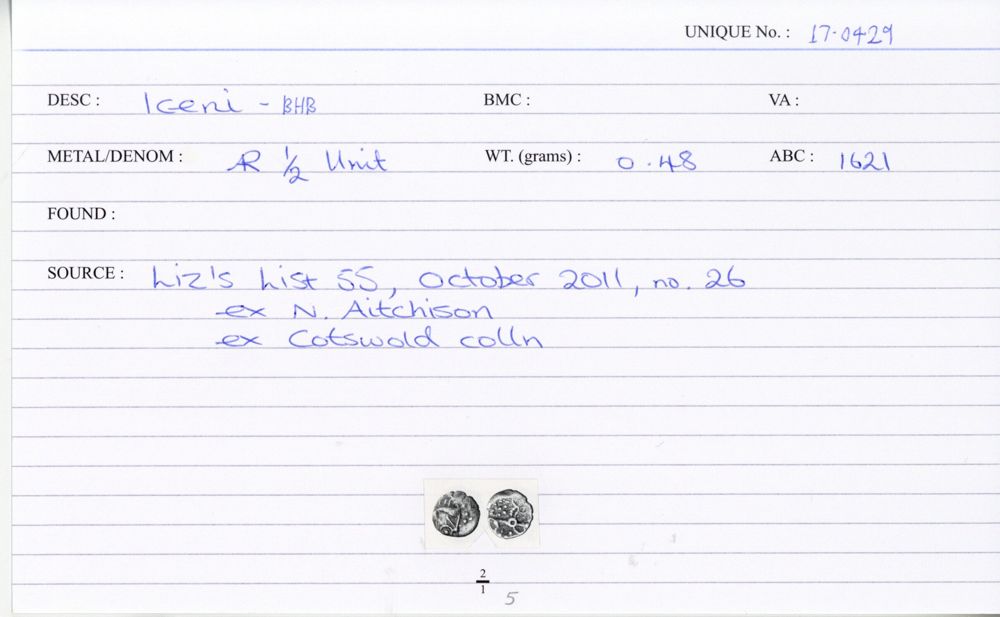 UNIQUE No. : 17-0429
DESC : Iceni - BHB BMC : VA :
METAL/DENOM : AR 1/2 Unit WT. (grams) : 0.48 ABC : 1621
FOUND :
SOURCE : Liz's List 55, October 2011, no. 26
ex N. Aitchison
ex Cotswold colln
2
1
5